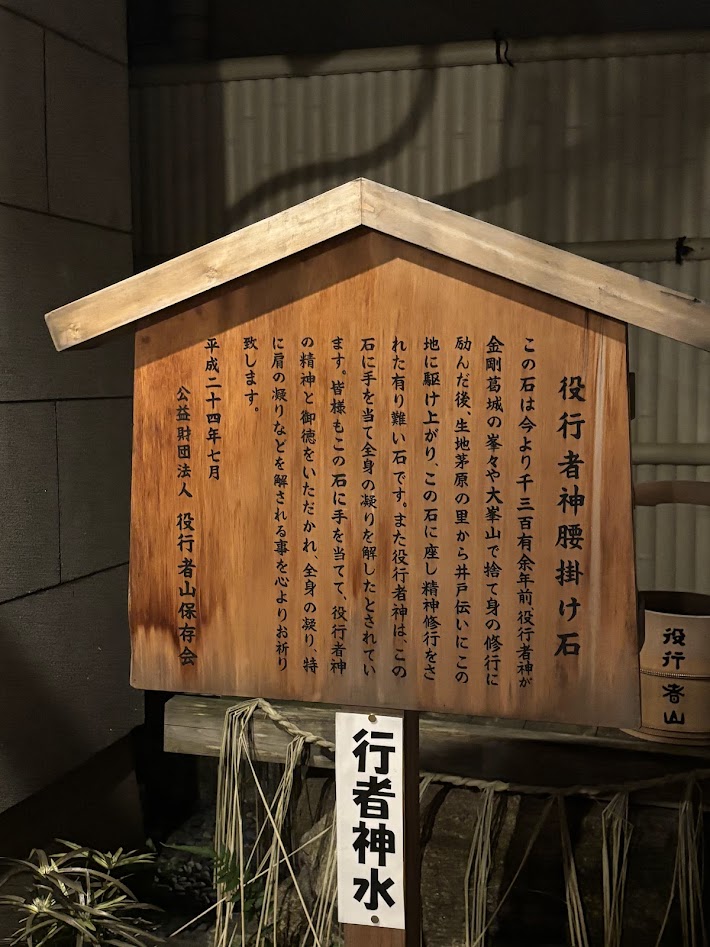 役行者神腰掛け石
この石は今より千三百有余年前、役行者神が
金剛葛城の峯々や大峯山で捨て身の修行に
励んだ後、生地茅原の里から井戸伝いにこの
地に駆け上がり、この石に座し精神修行をさ
れた有り難い石です。また役行者神は、この
石に手を当て全身の凝りを解したとされてい
ます。皆様もこの石に手を当てて、役行者神
の精神と御徳をいただかれ、全身の凝り、特
に肩の凝りなどを解される事を心よりお祈り
致します。
平成二十四年七月
公益財団法人 役行者山保存会
行者神水
役行者山